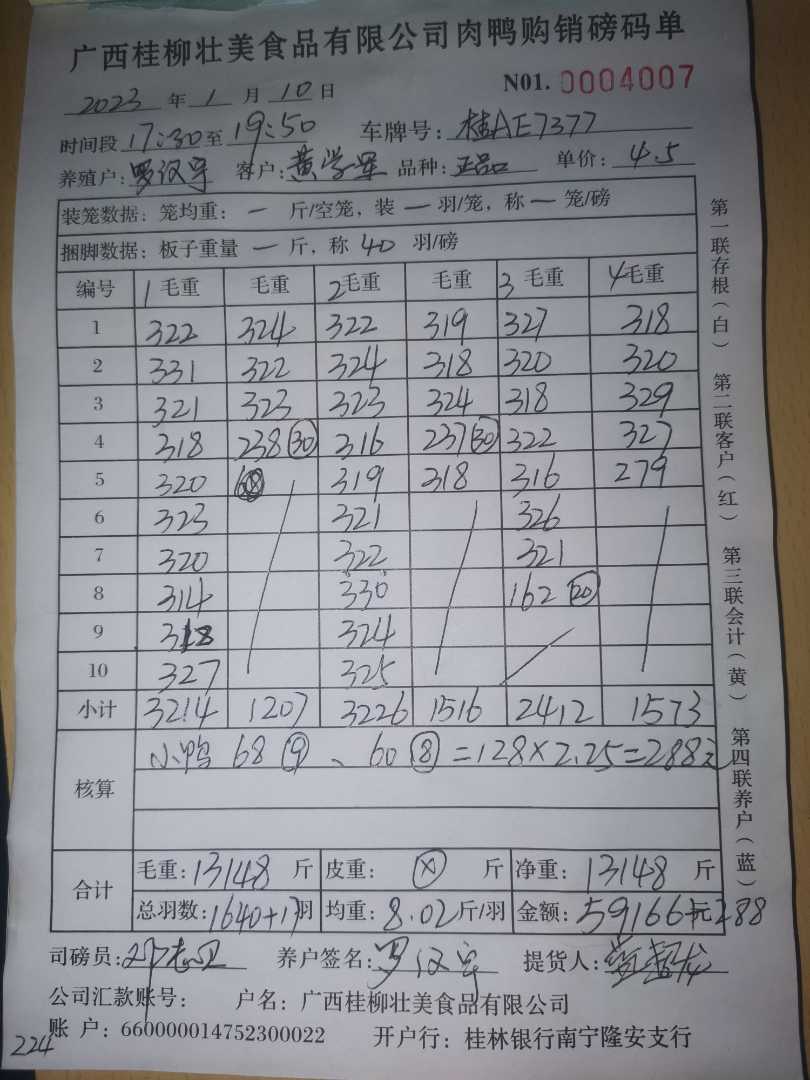 广西桂柳壮美食品有限公司肉鸭购销磅码单
2023 年 1 月 10 日 N01. 0004007
时间段 17:30 至 19:50 车牌号: 桂AE7377
养殖户: 罗汉宇 客户: 黄学军 品种: 正品 单价: 4.5
装笼数据: 笼均重: 一 斤/空笼, 装 一 羽/笼, 称 一 笼/磅
捆脚数据: 板子重量 一 斤, 称 40 羽/磅
编号 1 毛重 毛重 2 毛重 毛重 3 毛重 4 毛重
1 322 324 322 319 327 318
2 331 322 324 318 320 320
3 321 323 323 324 318 329
4 318 238 (30) 316 237 (30) 322 327
5 320 319 318 316 279
6 323 321 326
7 320 322 321
8 314 330 162 (20)
9 318 324
10 327 325
小计 3214 1207 3226 1516 2412 1573
核算 小鸭 68 (9) 、 60 (8) =128×2.25=288元
合计 毛重: 13148 斤 皮重: (×) 斤 净重: 13148 斤
总羽数: 1640+17 羽 均重: 8.02 斤/羽 金额: 59166 元 288
司磅员: 养户签名: 罗汉宇 提货人:
公司汇款账号: 户名: 广西桂柳壮美食品有限公司
账 户: 660000014752300022 开户行: 桂林银行南宁隆安支行
224
第一联存根(白) 第二联客户(红) 第三联会计(黄) 第四联养户(蓝)